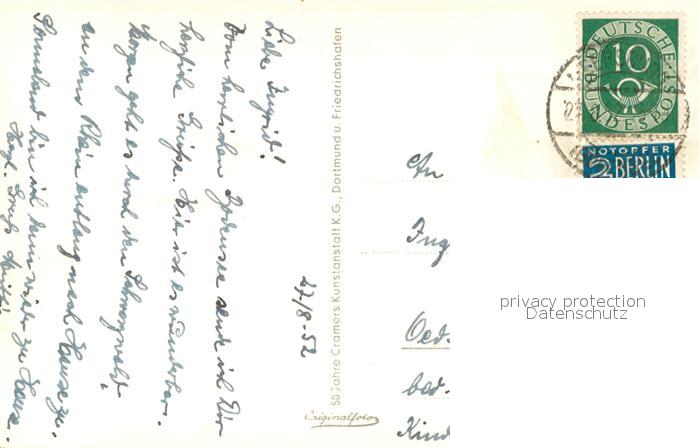 Liebe Ingrid!
Vom herrlichen Bodensee sende ich Dir
herzliche Grüße. Hier ist es wunderbar.
Morgen geht es durch den Schwarzwald
an den Rhein entlang nach Hause zu.
Sonnabend bin ich dann wieder zu Hause.
Herzl. Grüße
27/8.52
50 Jahre Cramers Kunstanstalt K.G., Dortmund u. Friedrichshafen
Originalfoto
DEUTSCHE BUNDESPOST
10
NOTOPFER
2 BERLIN
An
Ing
privacy protection
Datenschutz
Oed.
bad.
Kind